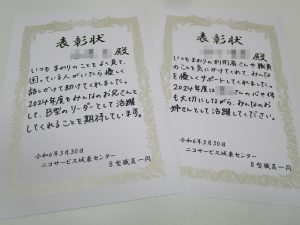 表彰状
殿
いつもまわりのことをよく見て、
困っている人がいたら優しく
話しかけて助けてくれました。
2024年度もみんなのお兄さんと
して、B型のリーダーとして活躍
してくれることを期待しています。
令和6年3月30日
ニコサービス城東センター
B型職員一同
表彰状
殿
いつもまわりの利用者さんや職員
のことを気にかけてくれて、みんな
を優しくサポートしてくれました。
2024年度は
さんのパやイモ
も大切にしながら、みんなのお
姉さんとして活躍してください。
令和6年3月30日
ニコサービス城東センター
B型職員一同